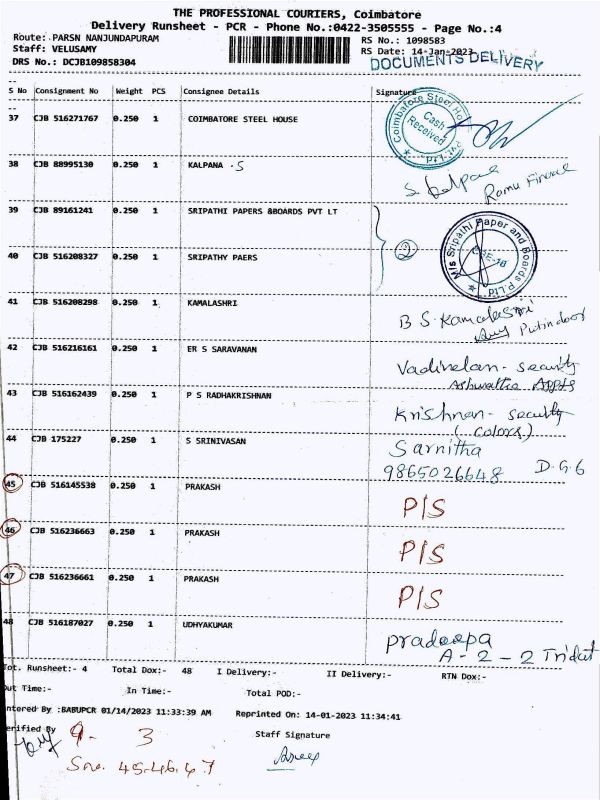 THE PROFESSIONAL COURIERS, Coimbatore
Delivery Runsheet - PCR - Phone No.:0422-3505555 - Page No.:4
Route: PARSN NANJUNDAPURAM
RS No.: 1098583
Staff: VELUSAMY
RS Date: 14-Jan-2023
DRS No.: DCJB109858304
DOCUMENTS DELIVERY
S No Consignment No Weight PCS Consignee Details Signature
37 CJB 516271767 0.250 1 COIMBATORE STEEL HOUSE
Coimbatore Steel Cash Received
38 CJB 88995130 0.250 1 KALPANA .S
S. Kalpana
39 CJB 89161241 0.250 1 SRIPATHI PAPERS &BOARDS PVT LT
2
M/s Sripathi Paper and Boards P.Ltd
40 CJB 516208327 0.250 1 SRIPATHY PAERS
41 CJB 516208298 0.250 1 KAMALASHRI
B S. Kamalashri
42 CJB 516216161 0.250 1 ER S SARAVANAN
Vadivelan - security
Ashwatha Appts
43 CJB 516162439 0.250 1 P S RADHAKRISHNAN
Krishnan - security
(colors)
44 CJB 175227 0.250 1 S SRINIVASAN
Sarnitha
9865026648 D.G6
45 CJB 516145538 0.250 1 PRAKASH P/S
46 CJB 516236663 0.250 1 PRAKASH P/S
47 CJB 516236661 0.250 1 PRAKASH P/S
48 CJB 516187027 0.250 1 UDHYAKUMAR
pradeepa
A-2-2
Tot. Runsheet:- 4 Total Dox:- 48 I Delivery:- II Delivery:- RTN Dox:-
Out Time:- In Time:- Total POD:-
ntered By :BABUPCR 01/14/2023 11:33:39 AM Reprinted On: 14-01-2023 11:34:41
erified By Staff Signature
9- 3
Sno. 45.46.47